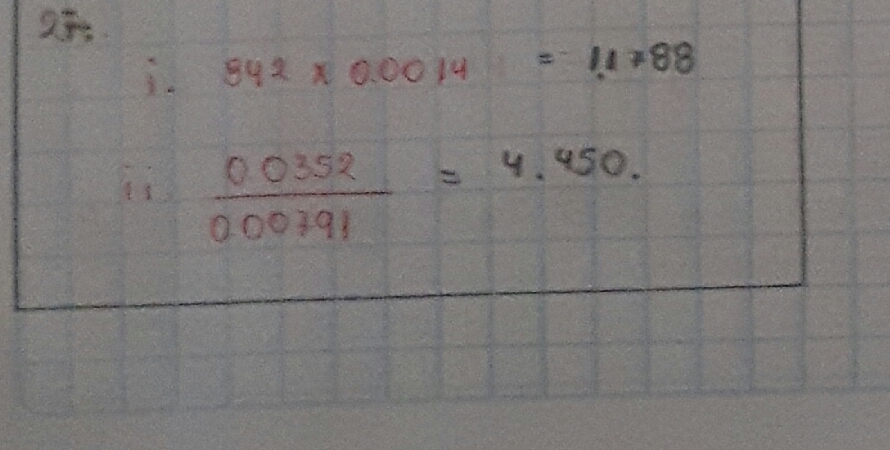 i. 842 x 0.0014 = 1.1788
ii 0.0352
0.00791 = 4.450.